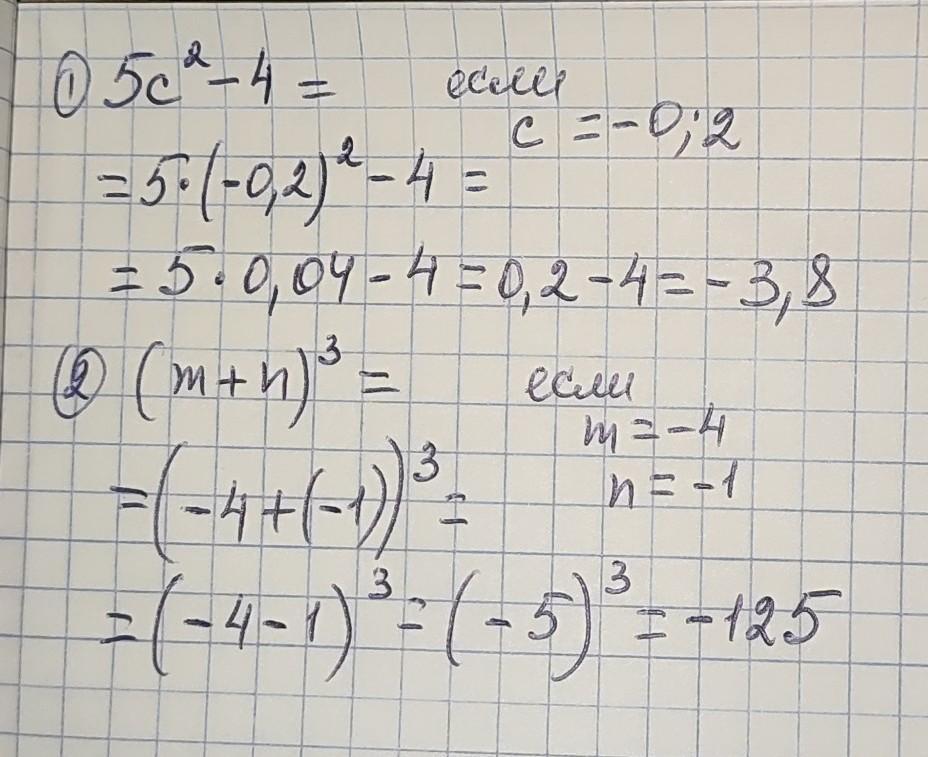 ① 5c² - 4 = если
c = -0;2
= 5·(-0,2)² - 4 =
= 5·0,04 - 4 = 0,2 - 4 = -3,8
② (m + n)³ = если
m = -4
n = -1
= (-4 + (-1))³ =
= (-4 - 1)³ = (-5)³ = -125